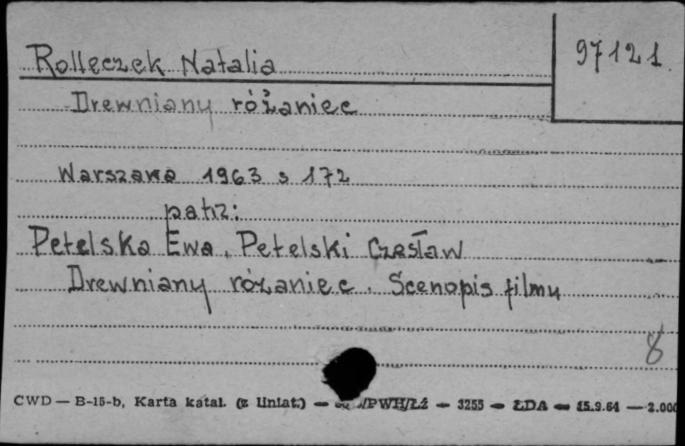 97121
Rolleczek Natalia
Drewniany różaniec
Warszawa 1963 s 172
patrz:
Petelska Ewa, Petelski Czesław
Drewniany różaniec. Scenopis filmu
8
CWD — B-15-b, Karta katal. (z liniat.) — /PWH/Łź — 3255 — ŁDA — 15.9.64 — 2.000